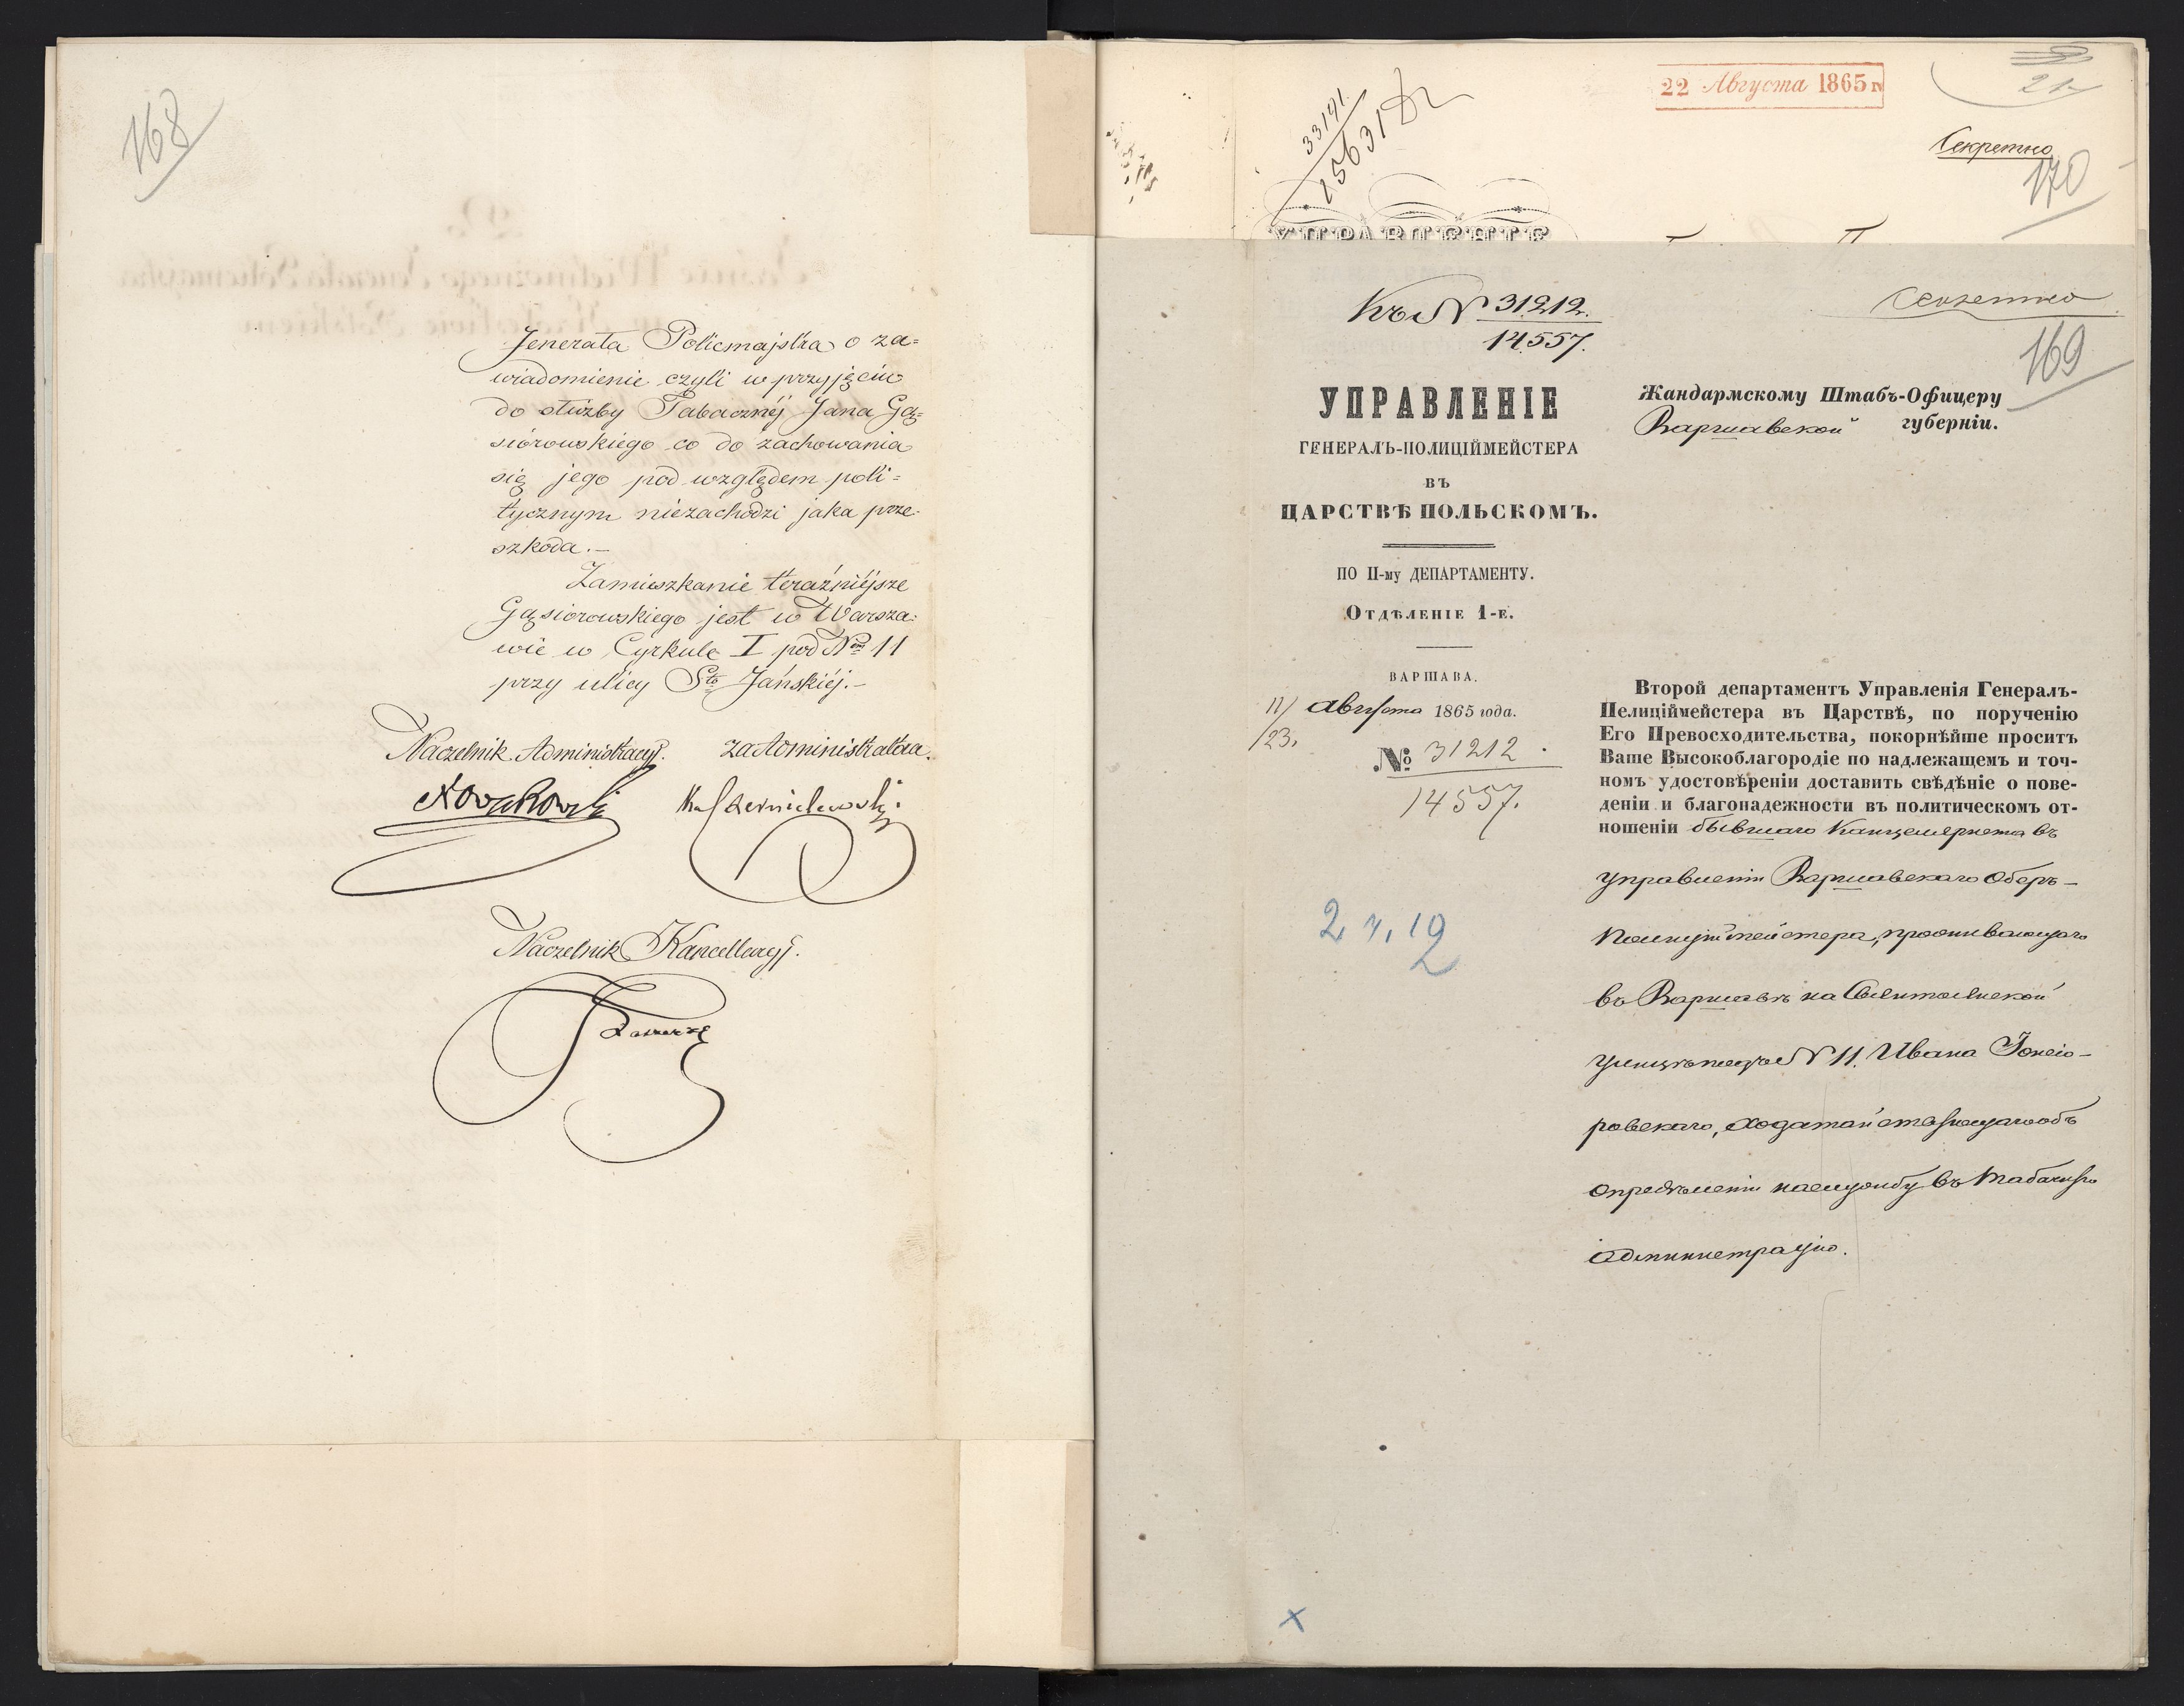 168
Jenerała Policmajstra o za=
wiadomienie czyli w przyjęciu
do służby Tabacznéj Jana Gą=
siorowskiego co do zachowania
się jego pod względem poli=
tycznym niezachodzi jaka prze-
szkoda.—
Zamieszkanie teraźniéjsze
Gąsiorowskiego jest w Warsza=
wie w Cyrkule I pod Nrem 11
przy ulicy Sto Jańskiéj.—
Naczelnik Administracyi. za Administratora.
Naczelnik Kancellaryi.
22 Августа 1865 г.
21
Секретно
170
33191
15631
УПРАВЛЕНІЕ
Къ № 31212.
14557.
Секретно
169
УПРАВЛЕНІЕ
ГЕНЕРАЛЪ-ПОЛИЦІЙМЕЙСТЕРА
ВЪ
ЦАРСТВѢ ПОЛЬСКОМЪ.
ПО II-му ДЕПАРТАМЕНТУ.
Отдѣленіе 1-е.
ВАРШАВА.
11/23. Августа 1865 года.
№ 31212.
14557.
2 ч. 19
2
Жандармскому Штабъ-Офицеру
Варшавской губерніи.
Второй департаментъ Управленія Генералъ-
Пелиціймейстера въ Царствѣ, по порученію
Его Превосходительства, покорнѣйше проситъ
Ваше Высокоблагородіе по надлежащемъ и точ-
номъ удостовѣреніи доставить свѣдѣніе о пове-
деніи и благонадежности въ политическомъ от-
ношеніи бывшаго Канцеляриста въ
управленіи Варшавскаго Оберъ-
Полиціймейстера, проживающаго
въ Варшавѣ на Свентоянской
улицѣ подъ № 11. Ивана Гонсіо-
ровскаго, ходатайствующаго объ
опредѣленіи на службу въ Табачную
Администрацію.
х